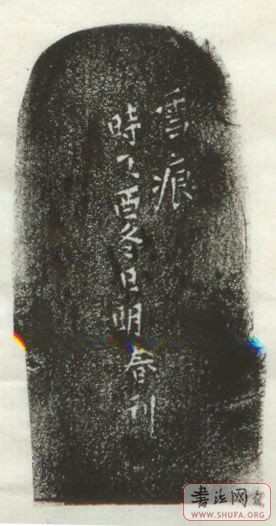 雪痕
時乙酉冬日明春刊
书法网
WWW.SHUFA.ORG